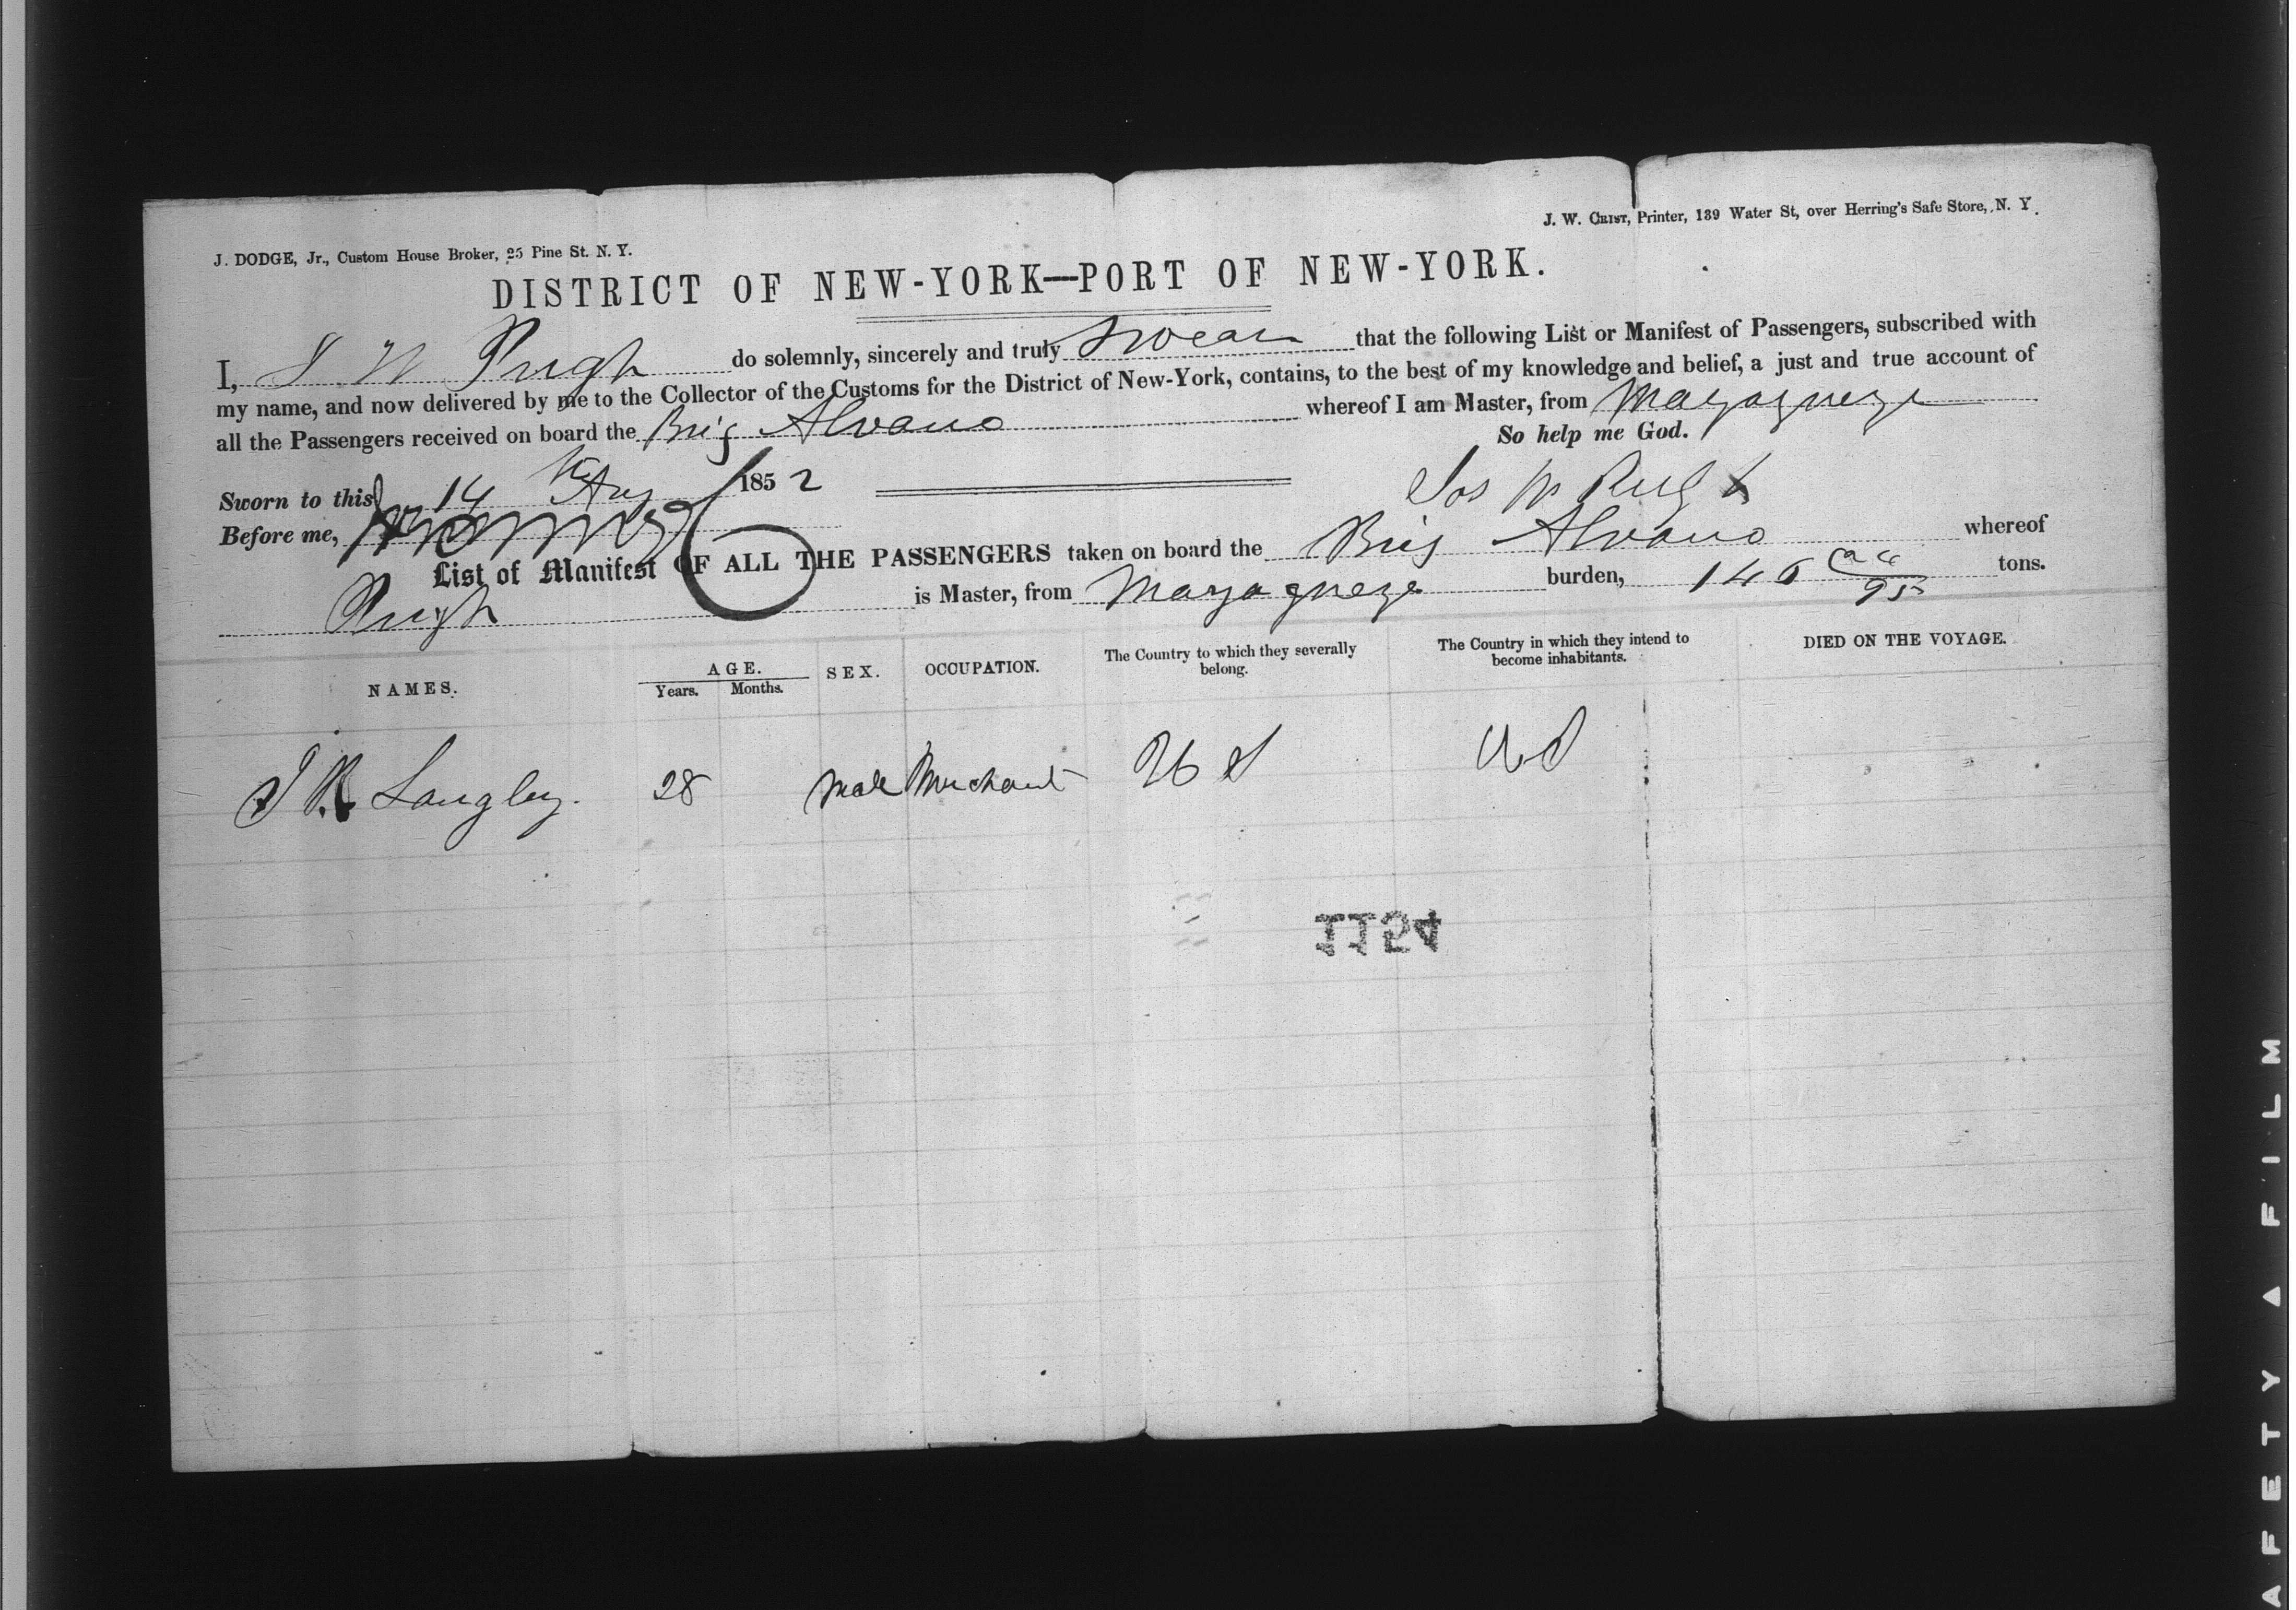 J. W. CRIST, Printer, 139 Water St, over Herring's Safe Store, N. Y.
J. DODGE, Jr., Custom House Broker, 25 Pine St. N. Y.
DISTRICT OF NEW-YORK—PORT OF NEW-YORK.
I, J W Pugh do solemnly, sincerely and truly swear that the following List or Manifest of Passengers, subscribed with
my name, and now delivered by me to the Collector of the Customs for the District of New-York, contains, to the best of my knowledge and belief, a just and true account of
all the Passengers received on board the Brig Alvano whereof I am Master, from Mayagueze
So help me God.
Sworn to this 14 Aug 1852
Jos W Pugh
Before me,
List of Manifest OF ALL THE PASSENGERS taken on board the Brig Alvano whereof
Pugh is Master, from Mayagueze burden, 146 95 tons.
NAMES. AGE. SEX. OCCUPATION. The Country to which they severally belong. The Country in which they intend to become inhabitants. DIED ON THE VOYAGE.
Years. Months.
J Langley. 28 male Merchant U S U S
1124
SAFETY A FILM